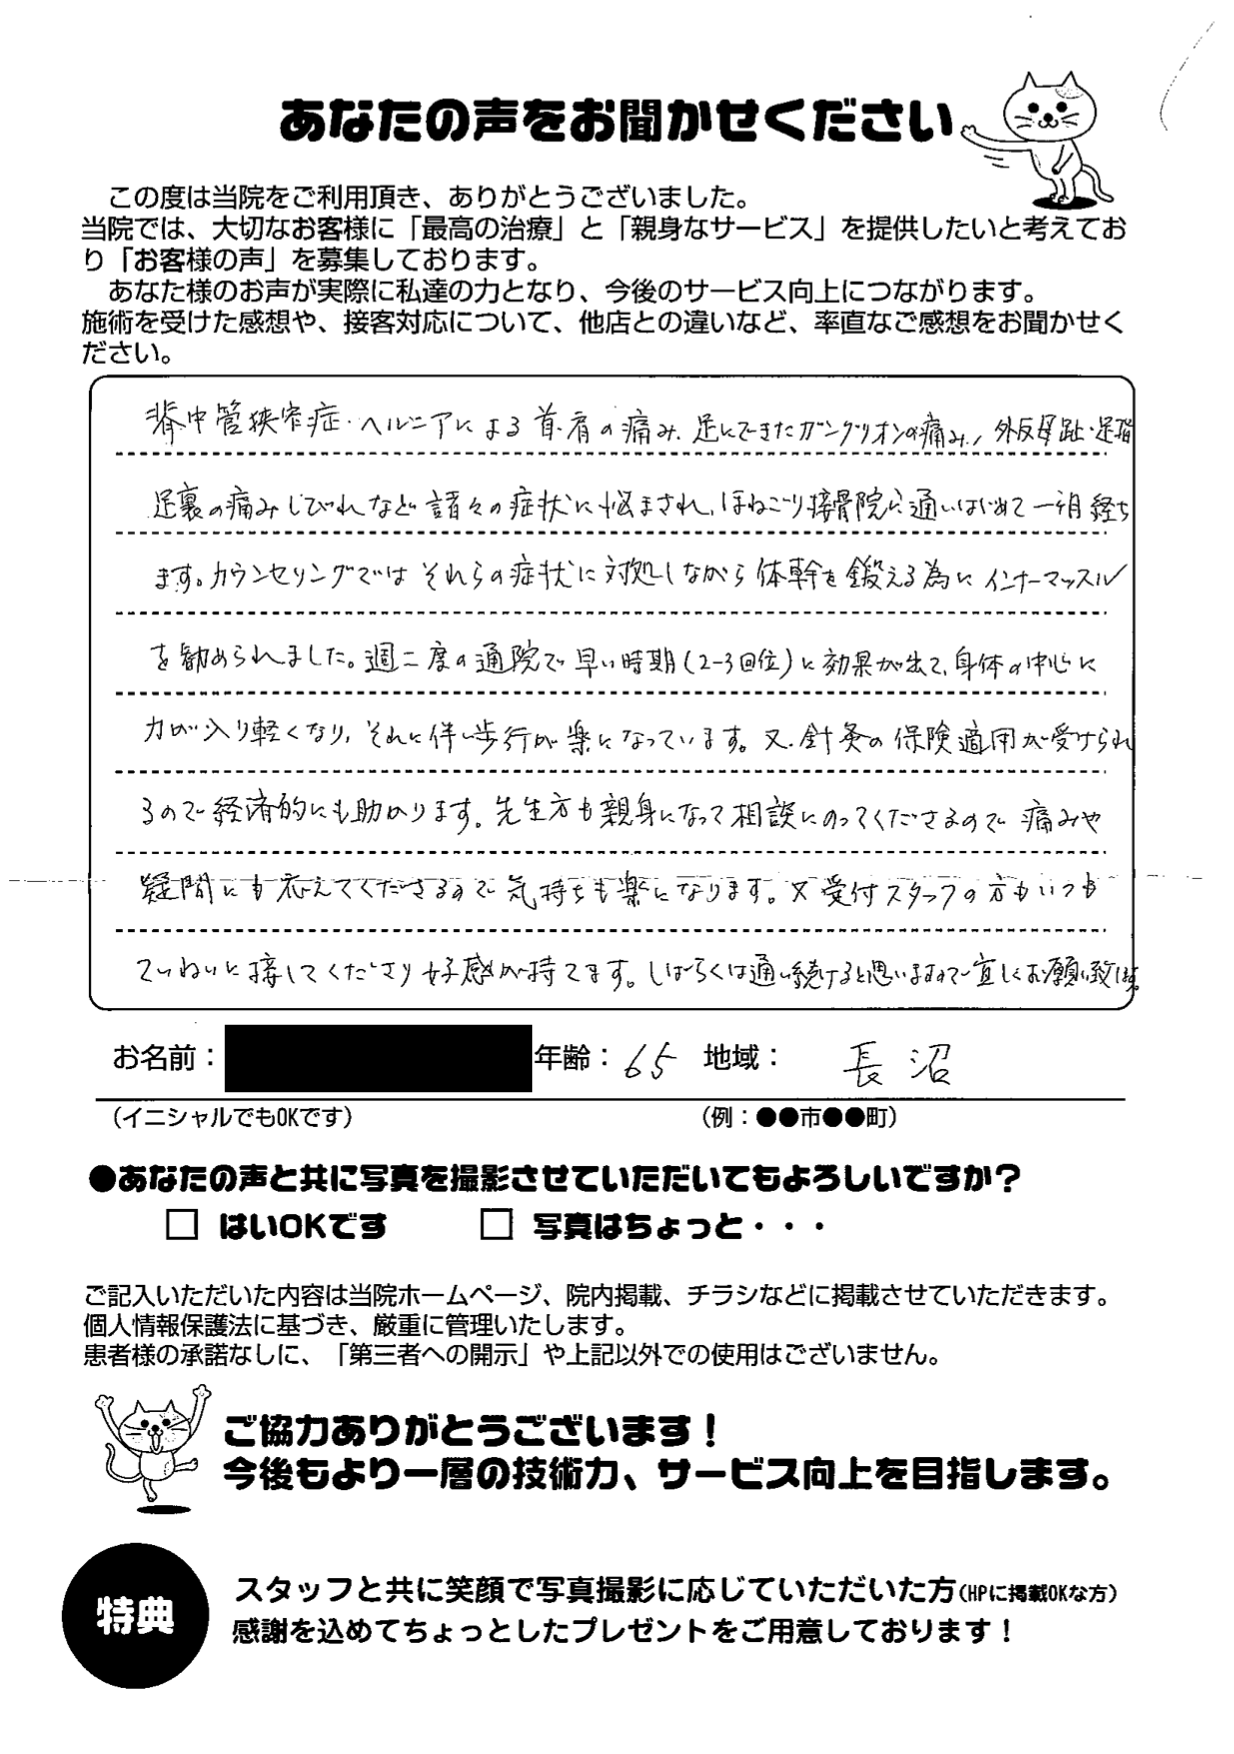 あなたの声をお聞かせください
この度は当院をご利用頂き、ありがとうございました。
当院では、大切なお客様に「最高の治療」と「親身なサービス」を提供したいと考えてお
り「お客様の声」を募集しております。
あなた様のお声が実際に私達の力となり、今後のサービス向上につながります。
施術を受けた感想や、接客対応について、他店との違いなど、率直なご感想をお聞かせく
ださい。
脊中管狭窄症・ヘルニアによる首・肩の痛み、足にできたガングリオンの痛み、外反母趾・足指
足裏の痛みしびれなど諸々の症状に悩まされ、ほねごり接骨院に通いはじめて一ヶ月経ち
ます。カウンセリングではそれらの症状に対処しながら体幹を鍛える為にインナーマッスル
を勧められました。週二度の通院で早い時期(2-3回位)に効果が出て、身体の中心に
力が入り軽くなり、それに伴い歩行が楽になっています。又、針灸の保険適用が受けられ
るので経済的にも助かります。先生方も親身になって相談にのってくださるので痛みや
疑問にも応えてくださるので気持ちも楽になります。又受付スタッフの方もいつも
ていねいに接してくださり好感が持てます。しばらくは通い続けると思いますので宜しくお願い致します。
お名前： 年齢：65 地域： 長沼
（イニシャルでもOKです） （例：●●市●●町）
●あなたの声と共に写真を撮影させていただいてもよろしいですか？
□ はいOKです □ 写真はちょっと・・・
ご記入いただいた内容は当院ホームページ、院内掲載、チラシなどに掲載させていただきます。
個人情報保護法に基づき、厳重に管理いたします。
患者様の承諾なしに、「第三者への開示」や上記以外での使用はございません。
ご協力ありがとうございます！
今後もより一層の技術力、サービス向上を目指します。
特典
スタッフと共に笑顔で写真撮影に応じていただいた方（HPに掲載OKな方）
感謝を込めてちょっとしたプレゼントをご用意しております！